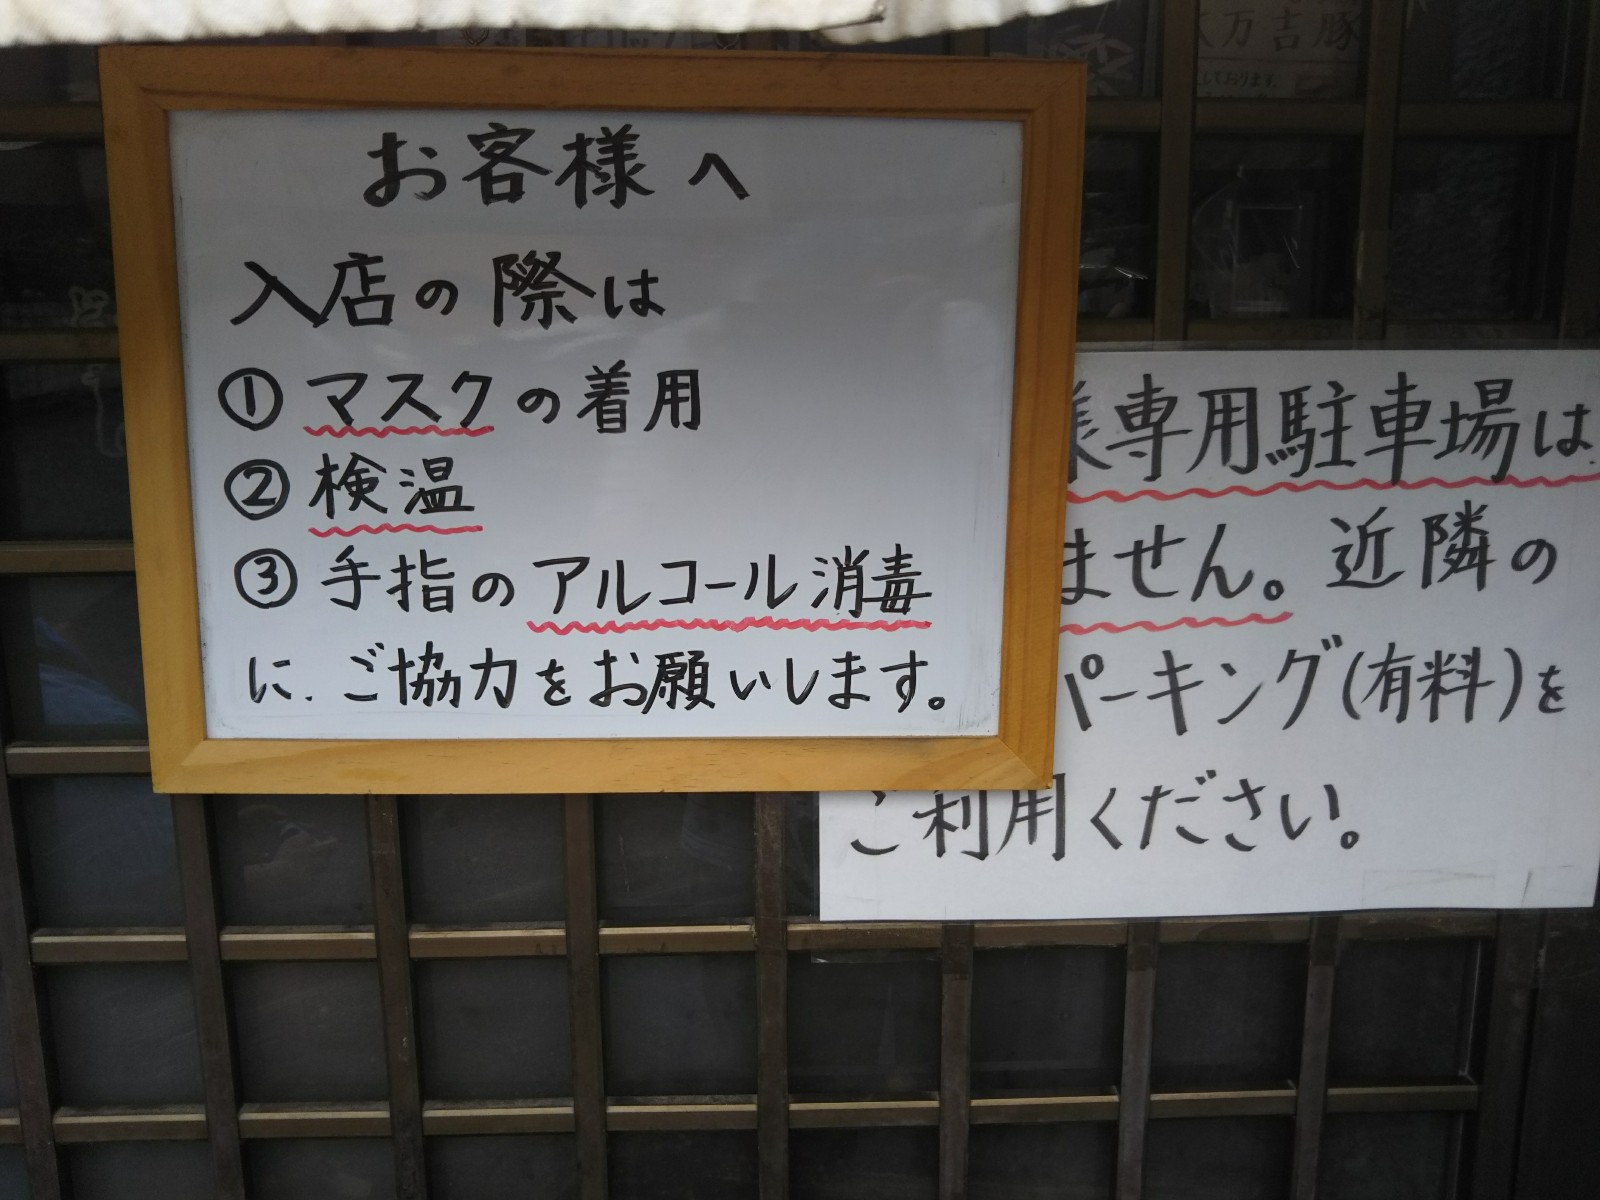 万吉豚
しております。
お客様へ
入店の際は
① マスクの着用
② 検温
③ 手指のアルコール消毒
に、ご協力をお願いします。
様専用駐車場は
ません。近隣の
パーキング(有料)を
ご利用ください。